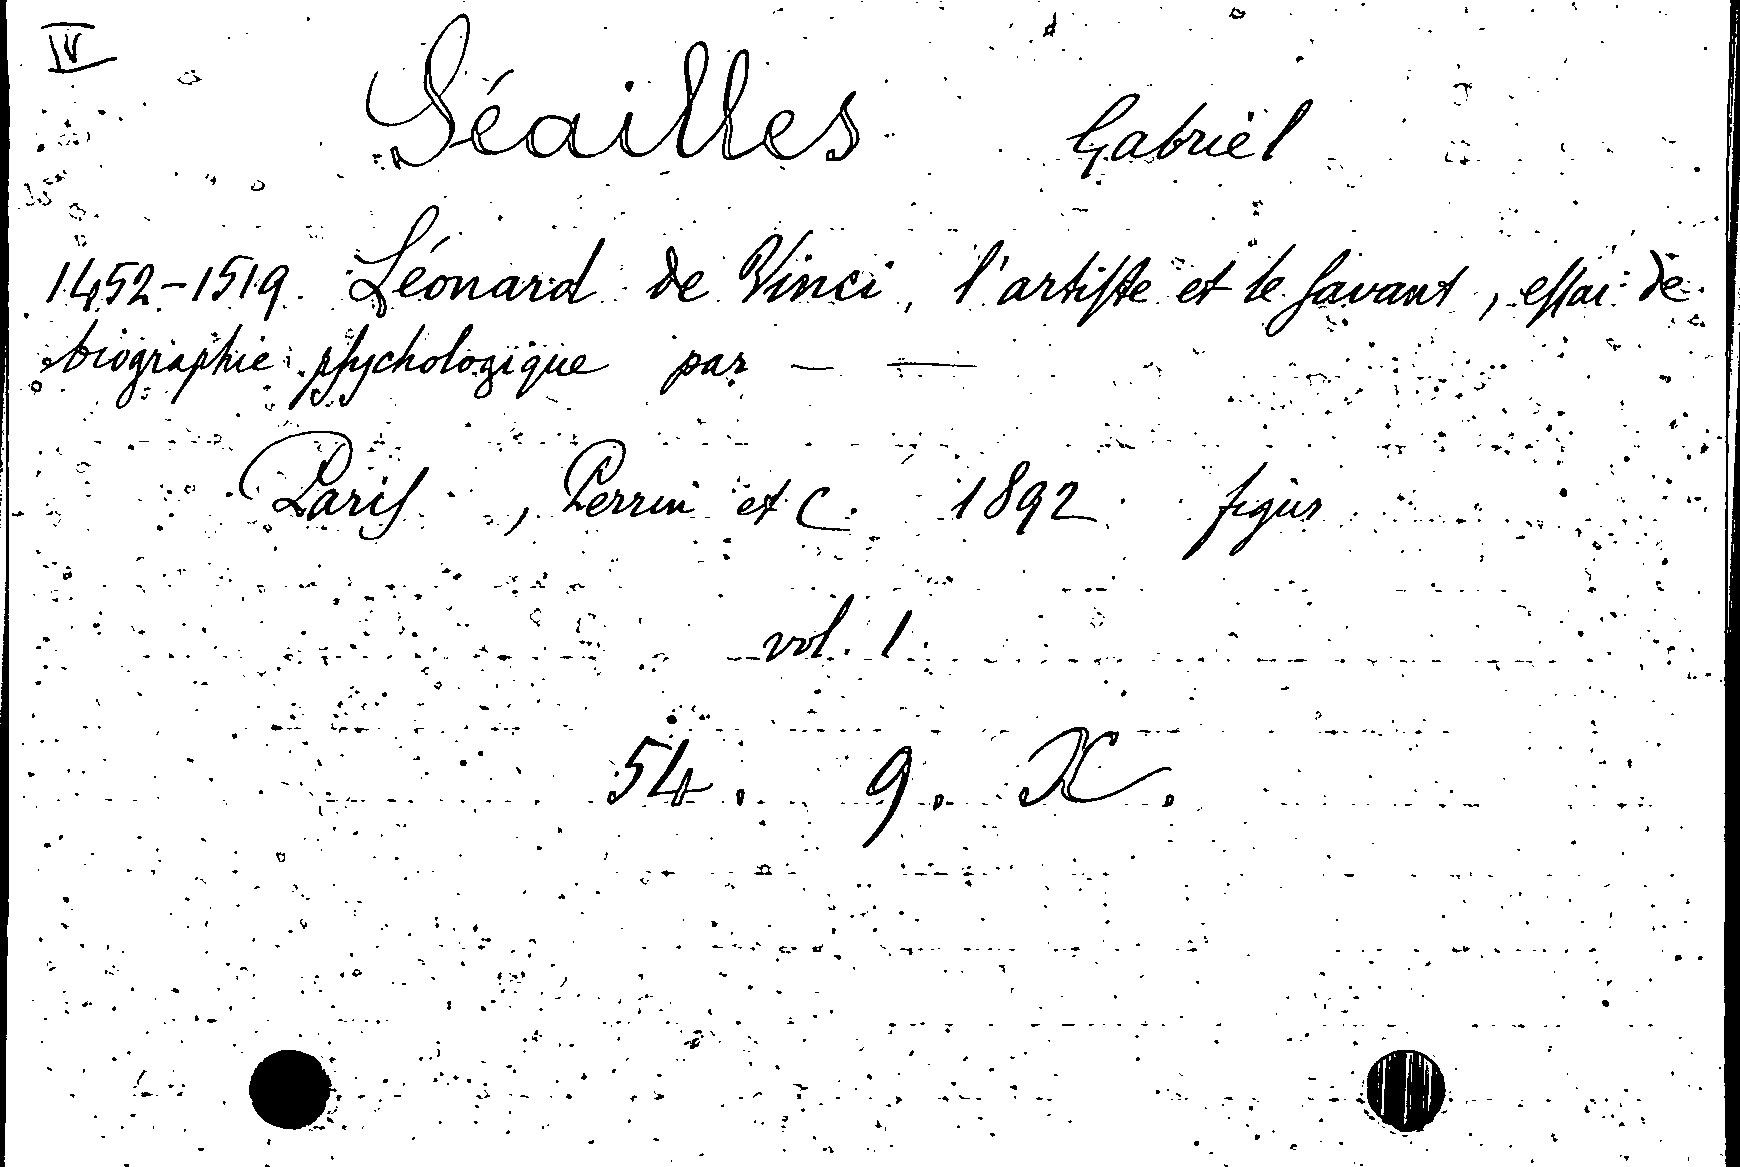 IV
Séailles Gabriel
1452-1519. Léonard de Vinci, l'artiste et le savant, essai de
biographie psychologique par — —
Paris, Perrin et C. 1892 figur
vol. 1.
54. 9. X.